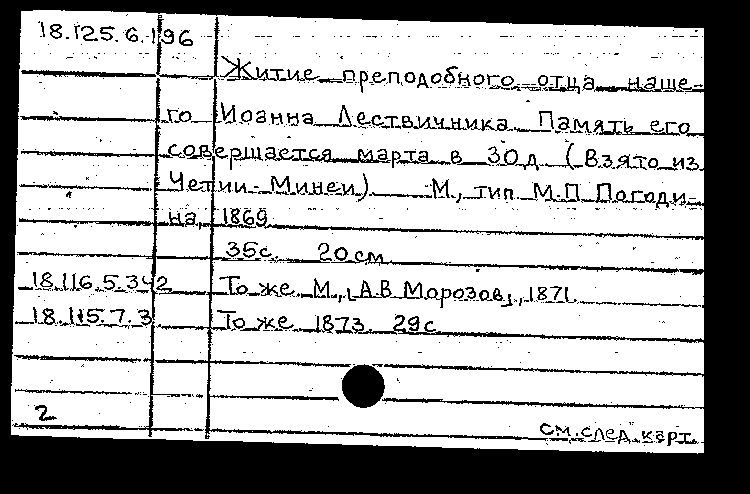 18.125.6.196
Житие преподобного отца наше-
го Иоанна Лествичника. Память его
совершается марта в 30 д. (Взято из
Четии-Минеи) М., тип. М.П. Погоди-
на, 1869
35с. 20см
18.116.5.342 То же. М., [А.В. Морозов], 1871.
18.115.7.3 То же 1873. 29с
2
см. след. карт.